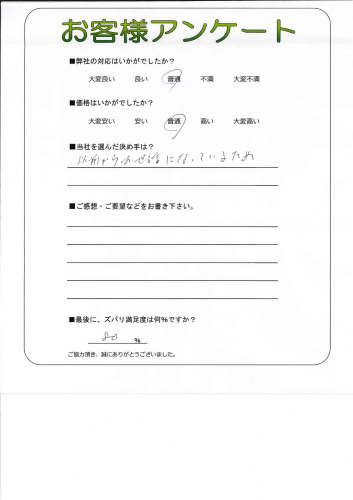 お客様アンケート
■弊社の対応はいかがでしたか?
大変良い 良い 普通 不満 大変不満
■価格はいかがでしたか?
大変安い 安い 普通 高い 大変高い
■当社を選んだ決め手は?
以前からお世話になっているため
■ご感想・ご要望などをお書き下さい。
■最後に、ズバリ満足度は何%ですか?
80 %
ご協力頂き、誠にありがとうございました。